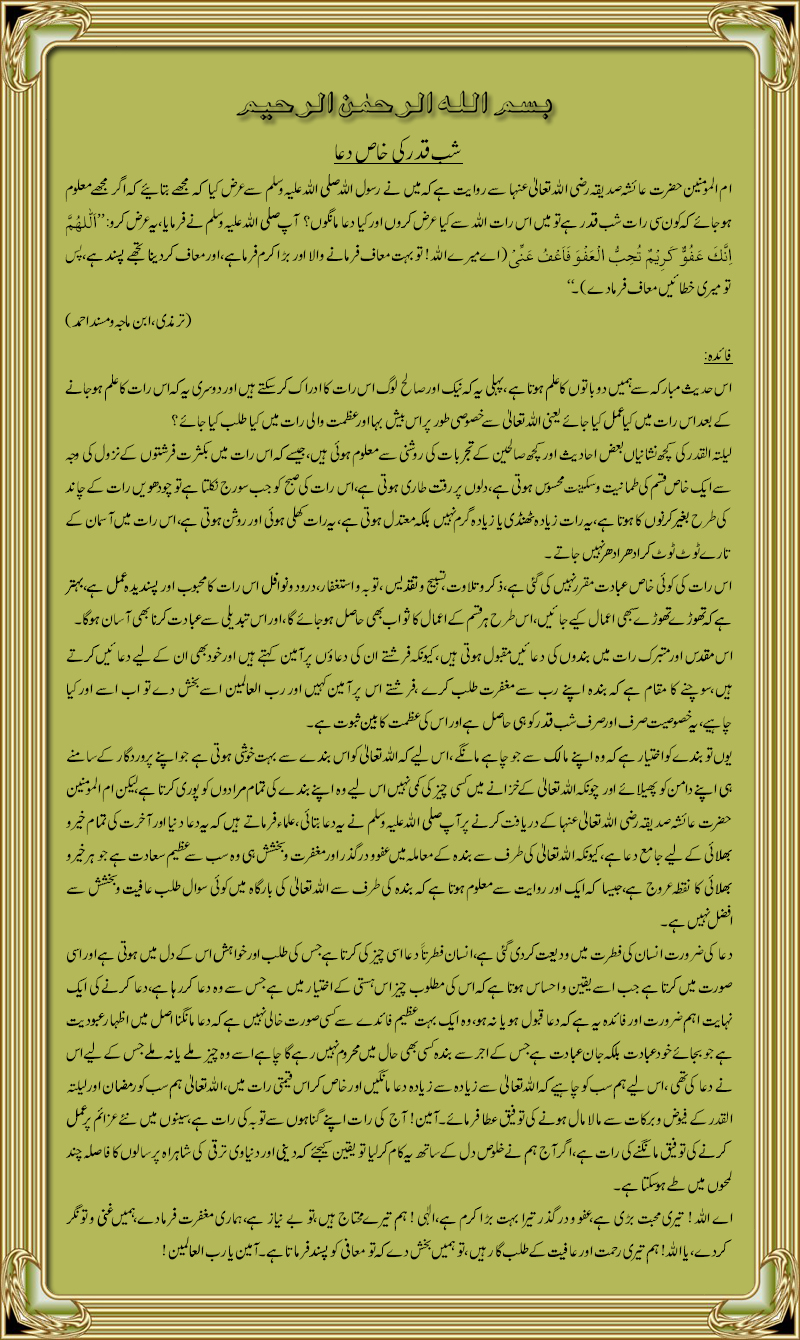 بسم الله الرحمٰن الرحيم
شب قدر کی خاص دعا
ام المؤمنین حضرت عائشہ صدیقہ رضی اللہ تعالیٰ عنہا سے روایت ہے کہ میں نے رسول اللہ صلی اللہ علیہ وسلم سے عرض کیا کہ مجھے بتائیے کہ اگر مجھے معلوم
ہو جائے کہ کون سی رات شب قدر ہے تو میں اس رات اللہ سے کیا عرض کروں اور کیا دعا مانگوں؟ آپ صلی اللہ علیہ وسلم نے فرمایا، یہ عرض کرو: ’’اَللّٰهُمَّ
اِنَّكَ عَفُوٌّ كَرِيْمٌ تُحِبُّ الْعَفْوَ فَاعْفُ عَنِّيْ (اے میرے اللہ! تو بہت معاف فرمانے والا اور بڑا کرم فرما ہے، اور معاف کر دینا تجھے پسند ہے، پس
تو میری خطائیں معاف فرما دے)۔‘‘
(ترمذی، ابن ماجہ و مسند احمد)
فائدہ:
اس حدیث مبارکہ سے ہمیں دو باتوں کا علم ہوتا ہے، پہلی یہ کہ نیک اور صالح لوگ اس رات کا ادراک کر سکتے ہیں اور دوسری یہ کہ اس رات کا علم ہو جانے
کے بعد اس رات میں کیا عمل کیا جائے یعنی اللہ تعالیٰ سے خصوصی طور پر اس بیش بہا اور عظمت والی رات میں کیا طلب کیا جائے؟
لیلتہ القدر کی کچھ نشانیاں بعض احادیث اور کچھ صالحین کے تجربات کی روشنی سے معلوم ہوئی ہیں، جیسے کہ اس رات میں بکثرت فرشتوں کے نزول کی وجہ
سے ایک خاص قسم کی طمانیت و سکینت محسوس ہوتی ہے، دلوں پر رقت طاری ہوتی ہے، اس رات کی صبح کو جب سورج نکلتا ہے تو چودھویں رات کے چاند
کی طرح بغیر کرنوں کا ہوتا ہے، یہ رات زیادہ ٹھنڈی یا زیادہ گرم نہیں بلکہ معتدل ہوتی ہے، یہ رات کھلی ہوئی اور روشن ہوتی ہے، اس رات میں آسمان کے
تارے ٹوٹ ٹوٹ کر ادھر ادھر نہیں جاتے۔
اس رات کی کوئی خاص عبادت مقرر نہیں کی گئی ہے، ذکر و تلاوت، تسبیح و تقدیس، توبہ و استغفار، درود و نوافل اس رات کا محبوب اور پسندیدہ عمل ہے، بہتر
ہے کہ تھوڑے تھوڑے سبھی اعمال کیے جائیں، اس طرح ہر قسم کے اعمال کا ثواب بھی حاصل ہو جائے گا، اور اس تبدیلی سے عبادت کرنا بھی آسان ہوگا۔
اس مقدس اور متبرک رات میں بندوں کی دعائیں مقبول ہوتی ہیں، کیونکہ فرشتے ان کی دعاؤں پر آمین کہتے ہیں اور خود بھی ان کے لیے دعائیں کرتے
ہیں، سوچنے کا مقام ہے کہ بندہ اپنے رب سے مغفرت طلب کرے، فرشتے اس پر آمین کہیں اور رب العالمین اسے بخش دے تو اب اسے اور کیا
چاہیے، یہ خصوصیت صرف اور صرف شب قدر کو ہی حاصل ہے اور اس کی عظمت کا بین ثبوت ہے۔
یوں تو بندے کو اختیار ہے کہ وہ اپنے مالک سے جو چاہے مانگے، اس لیے کہ اللہ تعالیٰ کو اس بندے سے بہت خوشی ہوتی ہے جو اپنے پروردگار کے سامنے
ہی اپنے دامن کو پھیلائے اور چونکہ اللہ تعالیٰ کے خزانے میں کسی چیز کی کمی نہیں اس لیے وہ اپنے بندے کی تمام مرادوں کو پوری کرتا ہے، لیکن ام المؤمنین
حضرت عائشہ صدیقہ رضی اللہ تعالیٰ عنہا کے دریافت کرنے پر آپ صلی اللہ علیہ وسلم نے یہ دعا بتائی، علماء فرماتے ہیں کہ یہ دعا دنیا اور آخرت کی تمام خیر و
بھلائی کے لیے جامع دعا ہے، کیونکہ اللہ تعالیٰ کی طرف سے بندہ کے معاملہ میں عفو و درگذر اور مغفرت و بخشش ہی وہ سب سے عظیم سعادت ہے جو ہر خیر و
بھلائی کا نقطہ عروج ہے، جیسا کہ ایک اور روایت سے معلوم ہوتا ہے کہ بندہ کی طرف سے اللہ تعالیٰ کی بارگاہ میں کوئی سوال طلب عافیت و بخشش سے
افضل نہیں ہے۔
دعا کی ضرورت انسان کی فطرت میں ودیعت کر دی گئی ہے، انسان فطرتاً دعا اسی چیز کی کرتا ہے جس کی طلب اور خواہش اس کے دل میں ہوتی ہے اور اسی
صورت میں کرتا ہے جب اسے یقین و احساس ہوتا ہے کہ اس کی مطلوب چیز اس ہستی کے اختیار میں ہے جس سے وہ دعا کر رہا ہے، دعا کرنے کی ایک
نہایت اہم ضرورت اور فائدہ یہ ہے کہ دعا قبول ہو یا نہ ہو، وہ ایک بہت عظیم فائدے سے کسی صورت خالی نہیں ہے کہ دعا مانگنا اصل میں اظہار عبودیت
ہے جو بجائے خود عبادت بلکہ جان عبادت ہے جس کے اجر سے بندہ کسی بھی حال میں محروم نہیں رہے گا چاہے اسے وہ چیز ملے یا نہ ملے جس کے لیے اس
نے دعا کی تھی، اس لیے ہم سب کو چاہیے کہ اللہ تعالیٰ سے زیادہ سے زیادہ دعا مانگیں اور خاص کر اس قیمتی رات میں، اللہ تعالیٰ ہم سب کو رمضان اور لیلتہ
القدر کے فیوض و برکات سے مالا مال ہونے کی توفیق عطا فرمائے۔ آمین! آج کی رات اپنے گناہوں سے توبہ کی رات ہے، سینوں میں نئے عزائم پر عمل
کرنے کی توفیق مانگنے کی رات ہے، اگر آج ہم نے خلوص دل کے ساتھ یہ کام کر لیا تو یقین کیجئے کہ دینی اور دنیاوی ترقی کی شاہراہ پر سالوں کا فاصلہ چند
لمحوں میں طے ہو سکتا ہے۔
اے اللہ! تیری محبت بڑی ہے، عفو و درگذر تیرا بہت بڑا کرم ہے، الٰہی! ہم تیرے محتاج ہیں، تو بے نیاز ہے، ہماری مغفرت فرما دے، ہمیں غنی و تونگر
کر دے، یا اللہ! ہم تیری رحمت اور عافیت کے طلب گار ہیں، تو ہمیں بخش دے کہ تو معافی کو پسند فرماتا ہے۔ آمین یا رب العالمین!